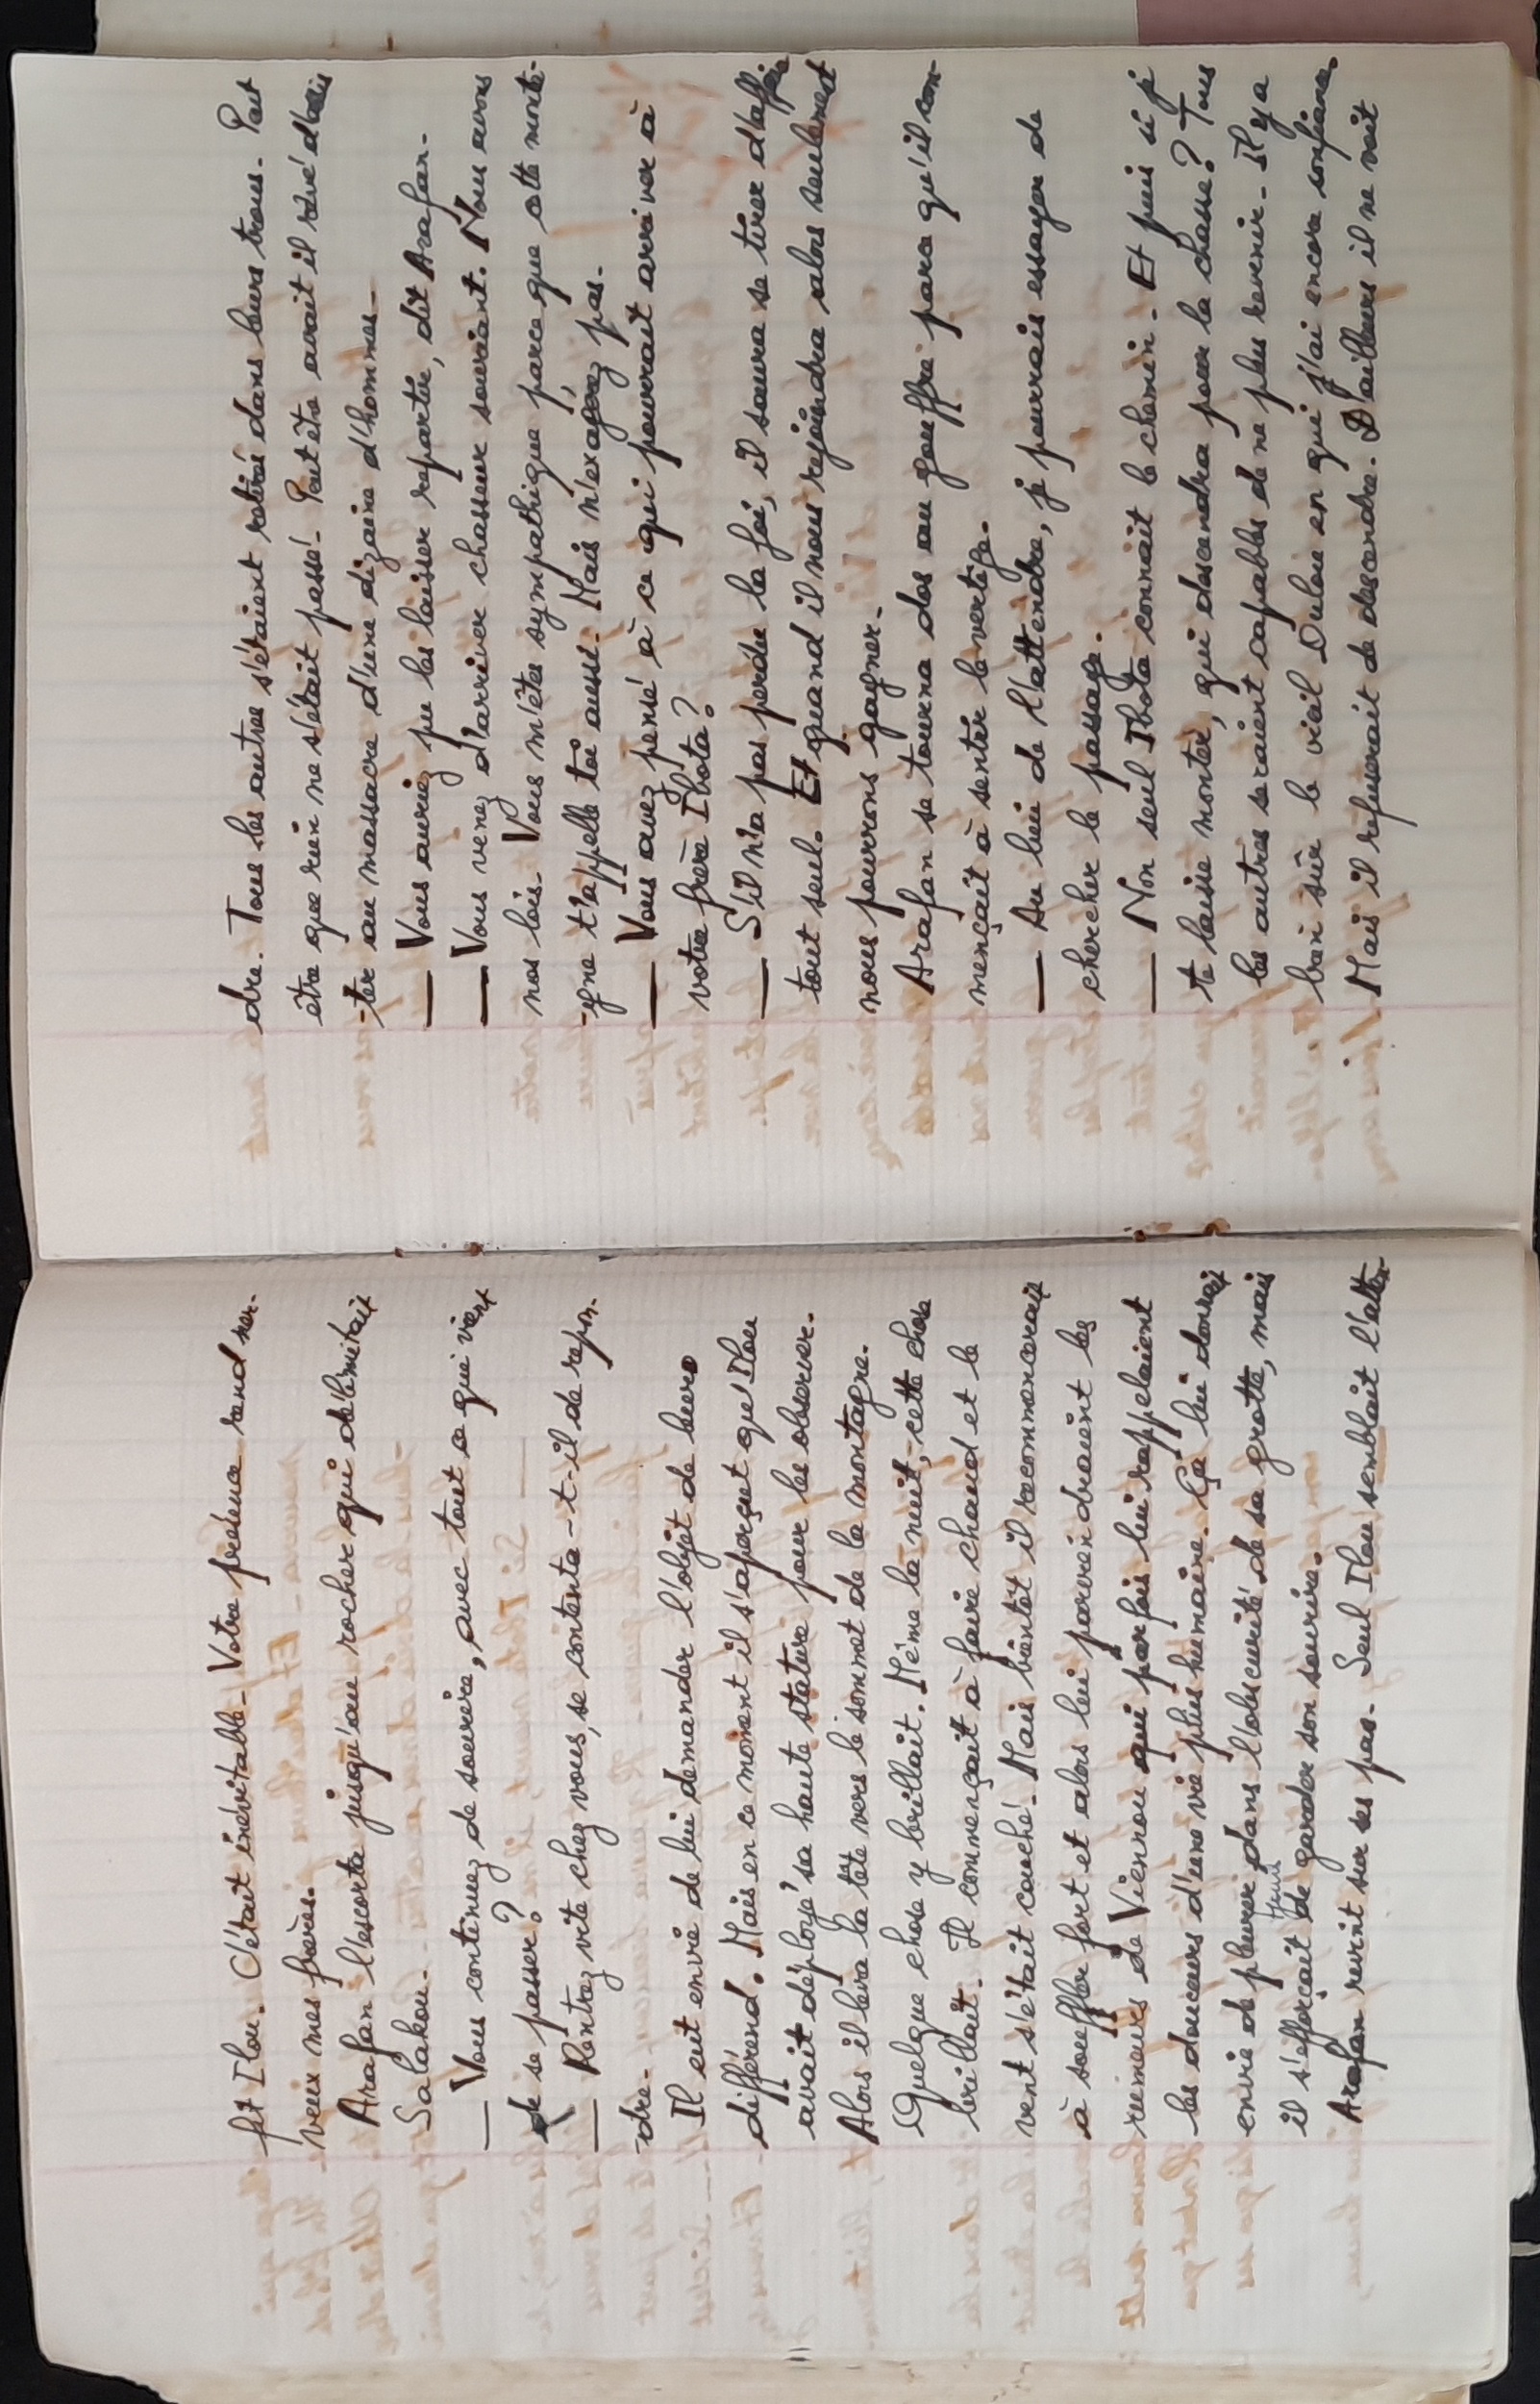 fit Ilou. C'était inévitable. Votre présence rend ner-
veux mes frères.
Arafan l'escorta jusqu'au rocher qui délimitait
Salakou.
— Vous continuez de sourire, avec tout ce qui vient
de se passer?
— Rentrez vite chez vous, se contenta-t-il de repon-
dre.
Il eut envie de lui demander l'objet de leurs
différend. Mais en ce moment il s'aperçut qu'Ilou
avait déployé sa haute stature pour les observer.
Alors il leva la tête vers le sommet de la montagne.
Quelque chose y brillait. Même la nuit, cette chose
brillait. Il commençait à faire chaud et le
vent s'était couché. Mais bientôt il recommencerait
à souffler fort et alors lui parviendraient les
rumeurs de Vienrou qui parfois lui rappelaient
les douceurs d'une vie plus humaine. Ça lui donnait
envie de pleurer dans l'obscurité de sa grotte, mais
il s'efforçait de garder son sourire.
Arafan revint sur ses pas. Seul Ilou semblait l'atten-
dre. Tous les autres s'étaient retirés dans leurs trous. Peut
être que rien ne s'était passé. Peut être avait il rêvé d'assis
-ter au massacre d'une dizaine d'hommes.
— Vous auriez pu les laisser repartir, dit Arafan.
— Vous venez d'arriver chasseur souriant. Nous avons
nos lois. Vous m'êtes sympathique parce que cette monta-
-gne t'appelle toi aussi. Mais n'exagérez pas.
— Vous avez pensé à ce qui pourrait arriver à
votre frère Ibota?
— S'il n'a pas perdu la foi, il saura se tirer d'affaire
tout seul. Et quand il nous rejoindra alors seulement
nous pourrons gagner.
Arafan se tourna dos au gouffre parce qu'il com-
mençait à sentir le vertige.
— Au lieu de l'attendre, je pourrais essayer de
chercher le passage.
— Non seul Ibota connait le chemin. Et puis si je
te laisse monter, qui descendra pour la chasse? Tous
les autres seraient capables de ne plus revenir. Il y a
bien sûr le vieil Oulou en qui j'ai encore confiance
Mais il refuserait de descendre. D'ailleurs il ne voit